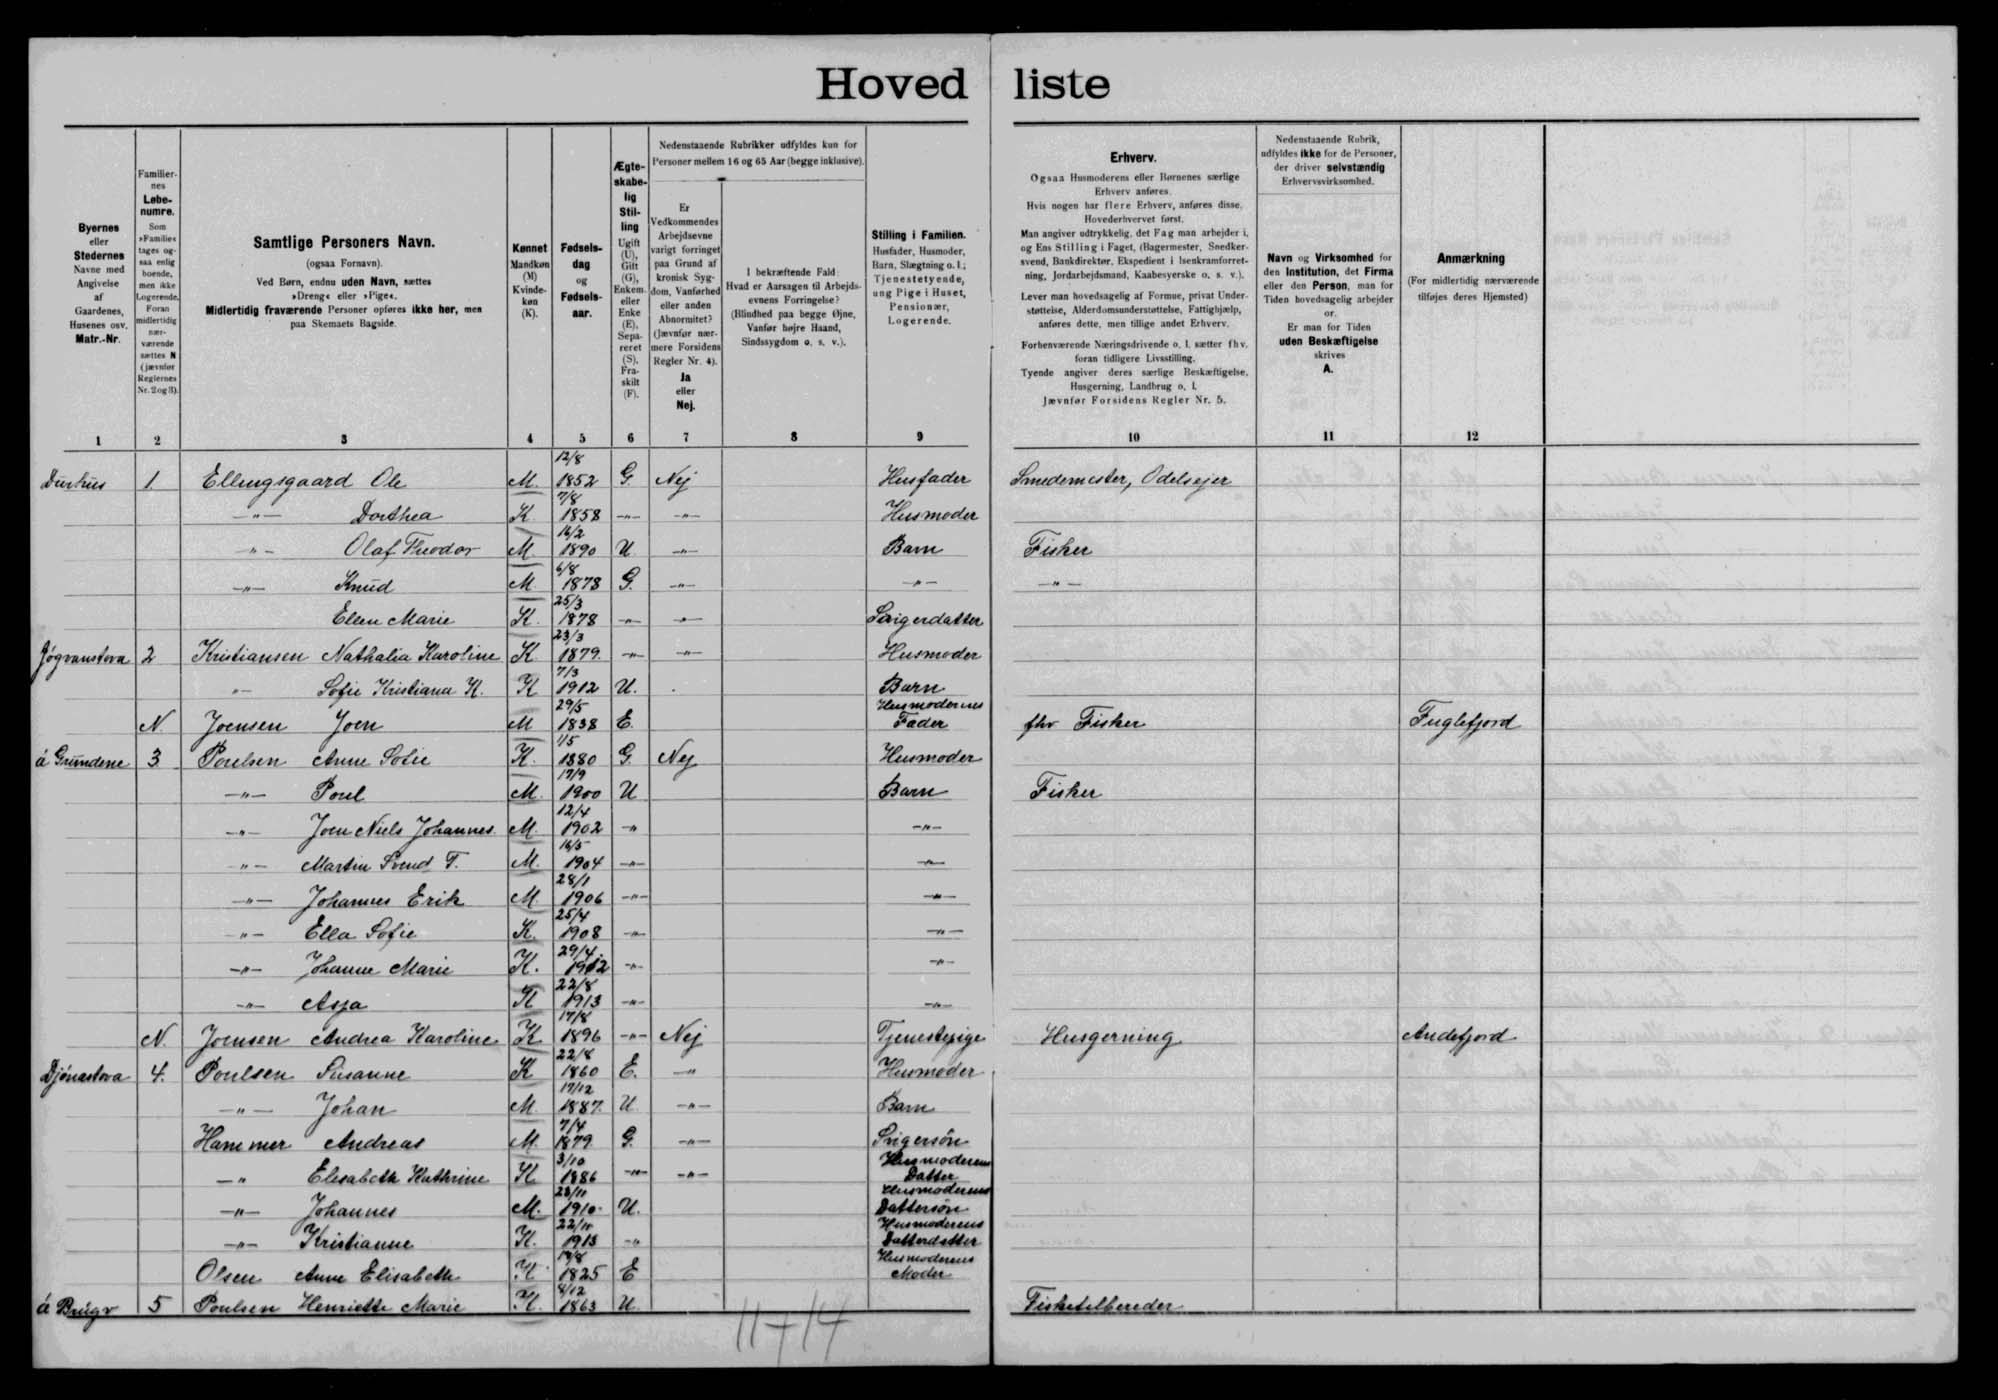 Hoved liste
Byernes eller Stedernes Navne med Angivelse af Gaardenes, Husenes osv. Matr.-Nr.
Familiernes Løbenumre. Som »Familie« tages ogsaa enlig boende, men ikke Logerende. Foran midlertidig nærværende sættes N (jævnfør Reglernes Nr. 2 og 3).
Samtlige Personers Navn.
(ogsaa Fornavn).
Ved Børn, endnu uden Navn, sættes
»Dreng« eller »Pige«.
Midlertidig fraværende Personer opføres ikke her, men
paa Skemaets Bagside.
Kønnet Mandkøn (M) Kvindekøn (K).
Fødselsdag og Fødselsaar.
Ægteskabelig Stilling Ugift (U), Gift (G), Enkem. eller Enke (E), Separeret (S), Fraskilt (F).
Nedenstaaende Rubrikker udfyldes kun for
Personer mellem 16 og 65 Aar (begge inklusive).
Er Vedkommendes Arbejdsevne varigt forringet paa Grund af kronisk Sygdom, Vanførhed eller anden Abnormitet? (Jævnfør nærmere Forsidens Regler Nr. 4). Ja eller Nej.
I bekræftende Fald:
Hvad er Aarsagen til Arbejdsevnens Forringelse?
(Blindhed paa begge Øjne,
Vanfør højre Haand,
Sindssygdom o. s. v.).
Stilling i Familien.
Husfader, Husmoder,
Barn, Slægtning o. l.;
Tjenestetyende,
ung Pige i Huset,
Pensionær,
Logerende.
Erhverv.
Ogsaa Husmoderens eller Børnenes særlige
Erhverv anføres.
Hvis nogen har flere Erhverv, anføres disse,
Hovederhvervet først.
Man angiver udtrykkelig, det Fag man arbejder i,
og Ens Stilling i Faget, (Bagermester, Snedkersvend, Bankdirektør, Ekspedient i Isenkramforretning, Jordarbejdsmand, Kaabesyerske o. s. v.).
Lever man hovedsagelig af Formue, privat Understøttelse, Alderdomsunderstøttelse, Fattighjælp,
anføres dette, men tillige andet Erhverv.
Forhenværende Næringsdrivende o. l. sætter fhv.
foran tidligere Livsstilling.
Tyende angiver deres særlige Beskæftigelse,
Husgerning, Landbrug o. l.
Jævnfør Forsidens Regler Nr. 5.
Nedenstaaende Rubrik,
udfyldes ikke for de Personer,
der driver selvstændig
Erhvervsvirksomhed.
Navn og Virksomhed for
den Institution, det Firma
eller den Person, man for
Tiden hovedsagelig arbejder
for.
Er man for Tiden
uden Beskæftigelse
skrives
A.
Anmærkning
(For midlertidig nærværende
tilføjes deres Hjemsted)
1 2 3 4 5 6 7 8 9 10 11 12
Durhús 1. Ellingsgaard Ole M. 12/8 1852 G. Nej Husfader Smedemester, Odelsejer
-"- Dorthea K. 7/8 1858 -"- -"- Husmoder
-"- Olaf Theodor M. 16/2 1890 U. -"- Barn Fisker
-"- Knud M. 6/8 1878 G. -"- -"- -"-
Ellen Marie K. 25/3 1878 -"- -"- Svigerdatter
Jógvanstova 2 Kristiansen Nathalia Karoline K. 23/3 1879. -"- -"- Husmoder
-"- Sofie Kristiana K. K 7/3 1912 U. Barn
N. Joensen Joen M 29/5 1838 E. Husmoderens Fader fhv Fisker Fuglefjord
á Grundene 3 Poulsen Anne Sofie K. 1/5 1880 G. Nej Husmoder
-"- Poul M. 17/9 1900 U Barn Fisker
-"- Joen Niels Johannes. M. 12/4 1902 -"- -"-
-"- Martin Svend T. M. 16/5 1904 -"- -"-
-"- Johannes Erik M. 28/1 1906 -"- -"-
-"- Ella Sofie K. 25/4 1908 -"- -"-
-"- Johanne Marie K. 29/4 1912 -"- -"-
-"- Asja K 22/8 1913 -"- -"-
N. Joensen Andrea Karoline K 17/8 1896 -"- Nej Tjenestepige Husgerning Andefjord
Djónastova 4. Poulsen Susanne K 22/8 1860 E. -"- Husmoder
-"- Johan M. 17/12 1887. U. -"- Barn
Hammer Andreas M. 7/4 1879. G. -"- Svigersön
-"- Elisabeth Kathrine K 3/10 1886 -"- -"- Husmoderens Datter
-"- Johannes M. 23/11 1910. U. Husmoderens Dattersön
-"- Kristianne K. 22/11 1913 -"- Husmoderens Datterdatter
Olsen Anne Elisabeth K 19/8 1825 E Husmoderens Moder
á Brúgv 5 Poulsen Henriette Marie K. 4/12 1863 U. Fisketilbereder
11+14